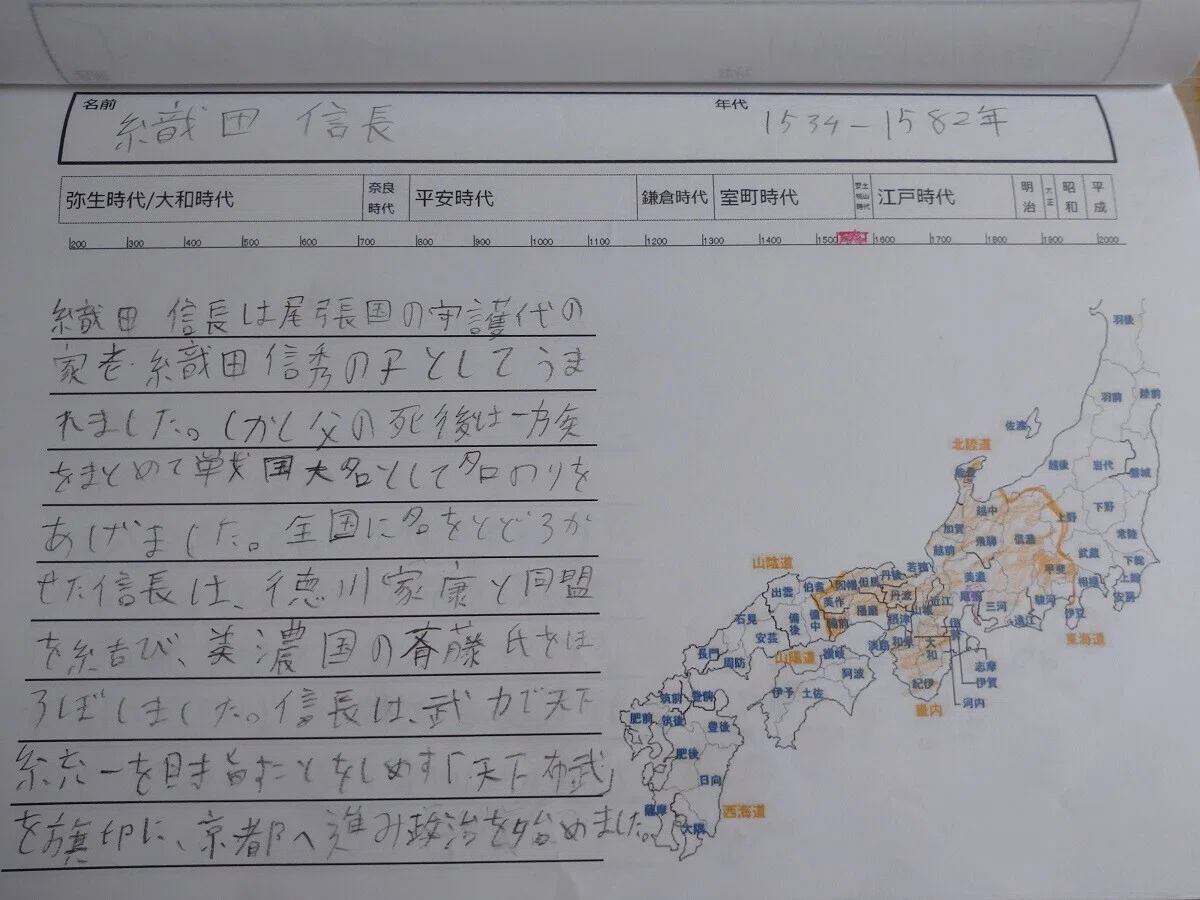 名前
織田 信長
年代
1534－1582年
弥生時代/大和時代
奈良時代
平安時代
鎌倉時代
室町時代
安土桃山時代
江戸時代
明治
大正
昭和
平成
200 300 400 500 600 700 800 900 1000 1100 1200 1300 1400 1500 1600 1700 1800 1900 2000
織田 信長は尾張国の守護代の
家老・織田信秀の子としてうま
れました。しかし父の死後は一族
をまとめて戦国大名として名のりを
あげました。全国に名をとどろか
せた信長は、徳川家康と同盟
を結び、美濃国の斉藤氏をほ
ろぼしました。信長は、武力で天下
統一を目指すことをしめす「天下布武」
を旗印に、京都へ進み政治を始めました。
羽後
羽前
陸前
佐渡
北陸道
能登
越後
岩代
磐城
越中
上野
下野
加賀
飛騨
信濃
常陸
越前
武蔵
下総
甲斐
山陰道
若狭
美濃
相模
上総
丹後
但馬
因幡
伯耆
出雲
尾張
駿河
伊豆
安房
美作
丹波
近江
三河
遠江
東海道
石見
備後
備中
備前
播磨
山城
摂津
安芸
山陽道
讃岐
淡路
和泉
大和
長門
周防
志摩
伊賀
阿波
紀伊
河内
伊予
土佐
畿内
筑前
豊前
肥前
筑後
豊後
肥後
日向
西海道
薩摩
大隅